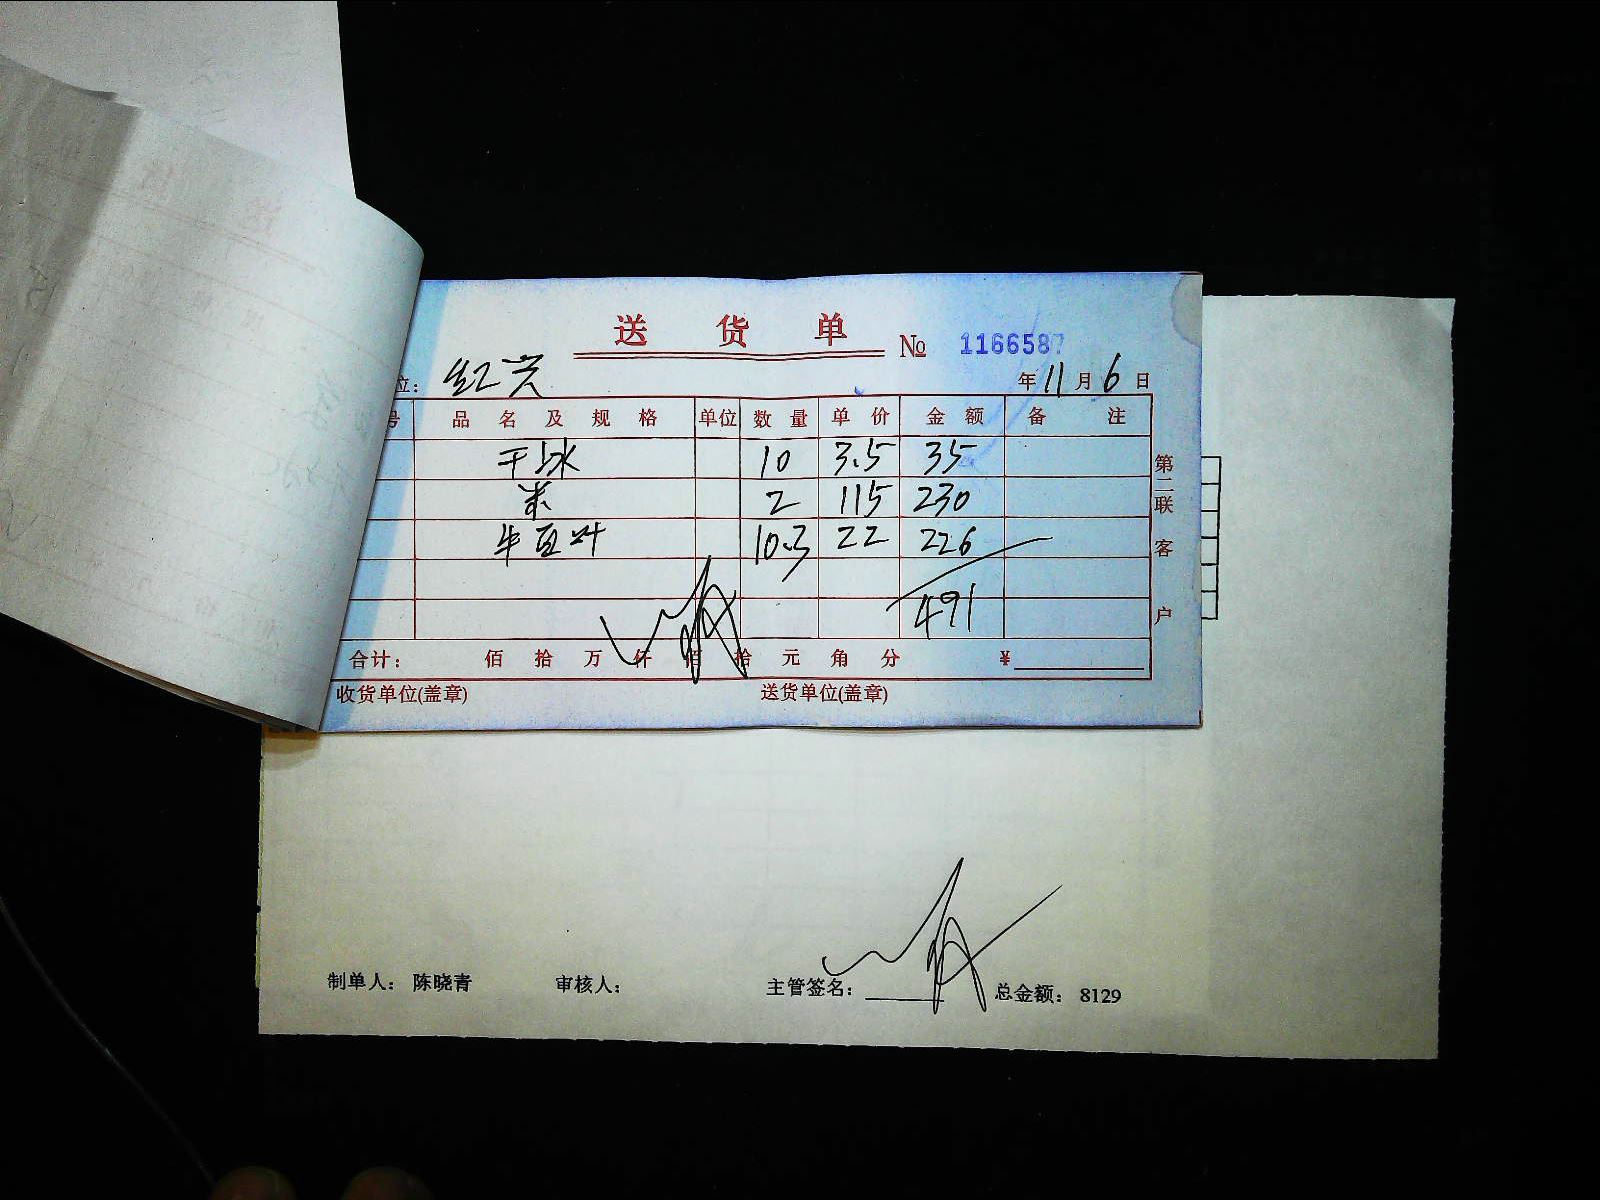 送 货 单
№ 1166587
位： 红兴 年 11 月 6 日
号 品 名 及 规 格 单位 数 量 单 价 金 额 备 注
干冰 10 3.5 35
米 2 115 230
牛豆叶 10.3 22 226
491
合计： 佰 拾 万 仟 佰 拾 元 角 分 ¥
收货单位(盖章) 送货单位(盖章)
第二联 客 户
制单人： 陈晓青 审核人： 主管签名： 总金额： 8129